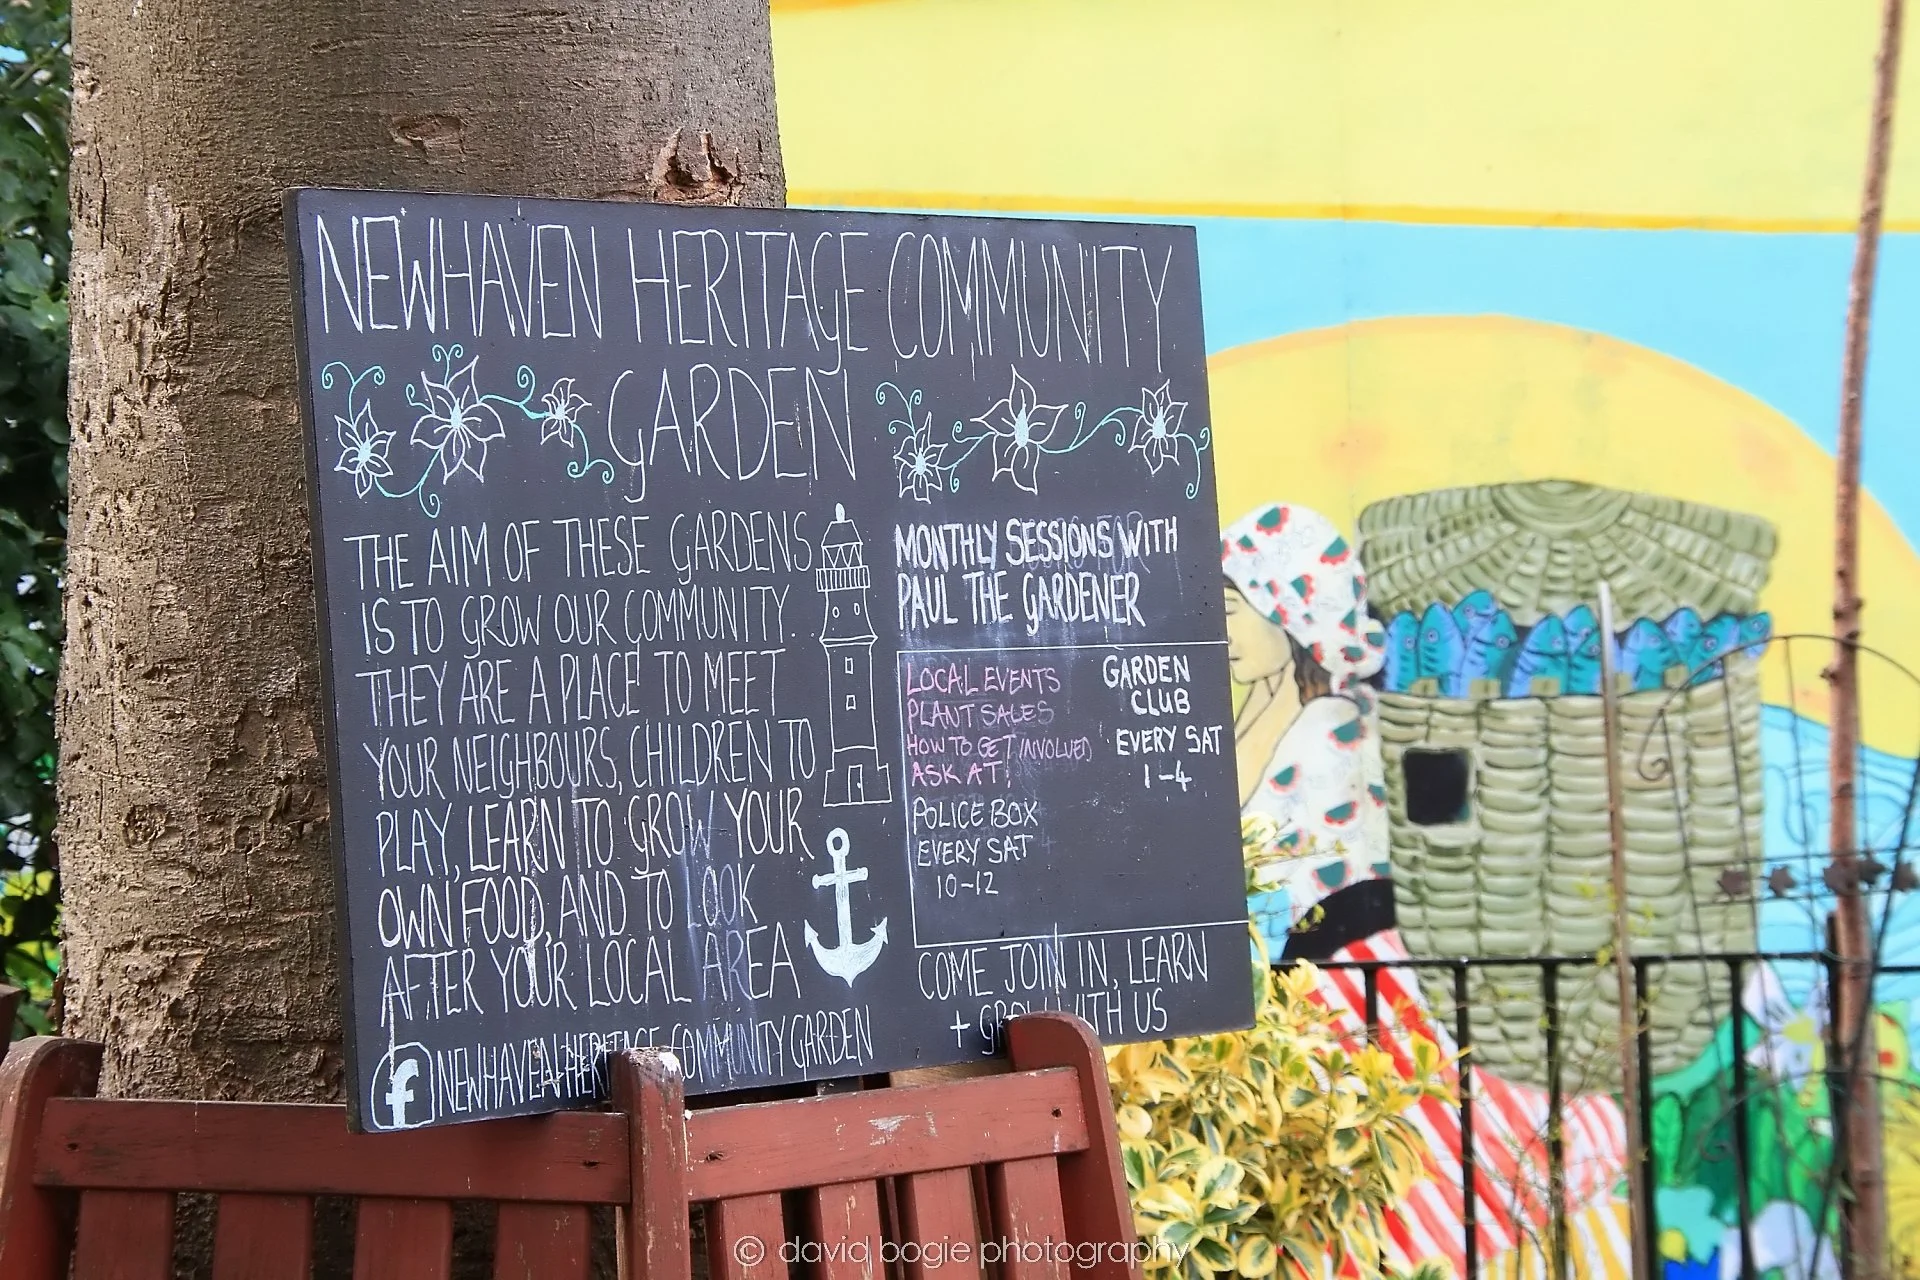 NEWHAVEN HERITAGE COMMUNITY
GARDEN
THE AIM OF THESE GARDENS
IS TO GROW OUR COMMUNITY.
THEY ARE A PLACE TO MEET
YOUR NEIGHBOURS, CHILDREN TO
PLAY, LEARN TO GROW YOUR
OWN FOOD, AND TO LOOK
AFTER YOUR LOCAL AREA
f NEWHAVEN HERITAGE COMMUNITY GARDEN
MONTHLY SESSIONS WITH
PAUL THE GARDENER
LOCAL EVENTS
PLANT SALES
HOW TO GET INVOLVED
ASK AT:
POLICE BOX
EVERY SAT
10-12
GARDEN
CLUB
EVERY SAT
1-4
COME JOIN IN, LEARN
+ GROW WITH US
© david bogie photography